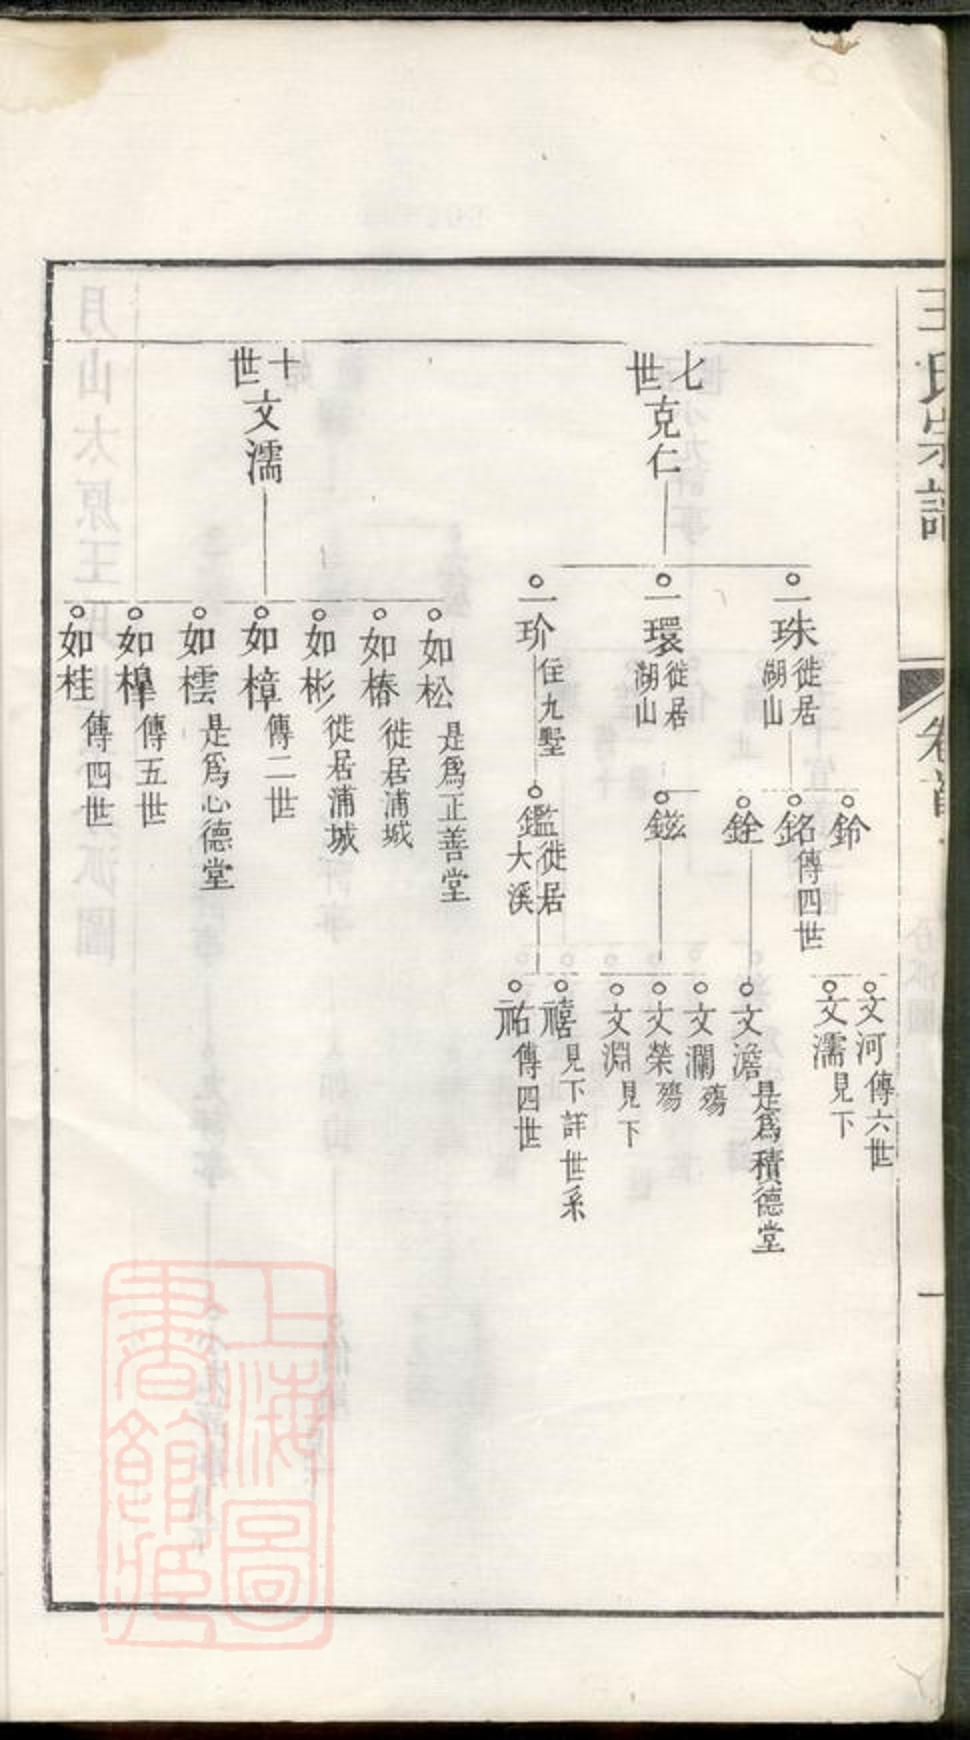 王氏宗譜
卷首
一
七世
克仁
一珠 徙居湖山
一環 徙居湖山
一玠 住九墅
鈴
銘 傳四世
銓
鎡
鑑 徙居大溪
文河 傳六世
文濡 見下
文澹 是為積德堂
文瀾 殤
文榮 殤
文淵 見下
禧 見下詳世系
祐 傳四世
十世
文濡
如松 是為正善堂
如椿 徙居浦城
如彬 徙居浦城
如樟 傳二世
如橒 是為心德堂
如樟 傳五世
如桂 傳四世
上海圖書館藏